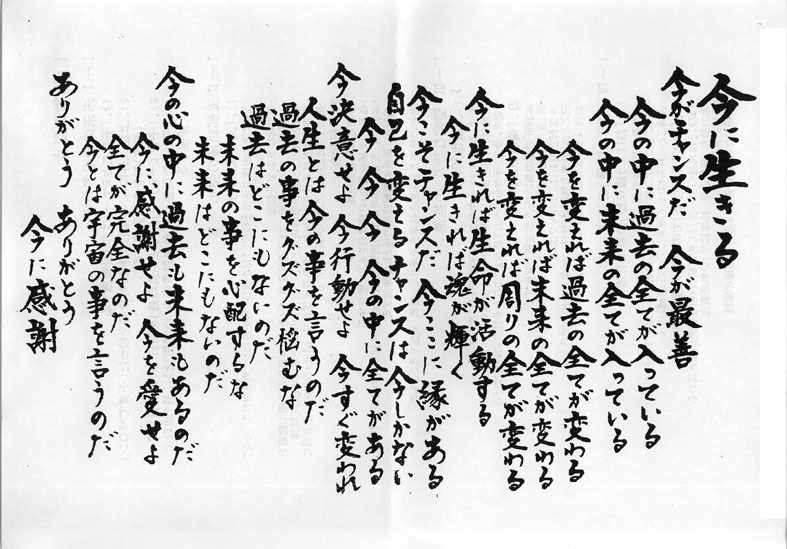 今に生きる
今がチャンスだ 今が最善
今の中に過去の全てが入っている
今の中に未来の全てが入っている
今を変えれば過去の全てが変わる
今を変えれば未来の全てが変わる
今を変えれば周りの全てが変わる
今に生きれば生命が活動する
今に生きれば魂が輝く
今こそチャンスだ 今ここに縁がある
自己を変えるチャンスは今しかない
今 今 今 今の中に全てがある
今決意せよ 今行動せよ 今すぐ変われ
人生とは今の事を言うのだ
過去の事をグズグズ悩むな
過去はどこにもないのだ
未来の事を心配するな
未来はどこにもないのだ
今の心の中に過去も未来もあるのだ
今に感謝せよ 今を愛せよ
全てが完全なのだ
今とは宇宙の事を言うのだ
ありがとう ありがとう
今に感謝